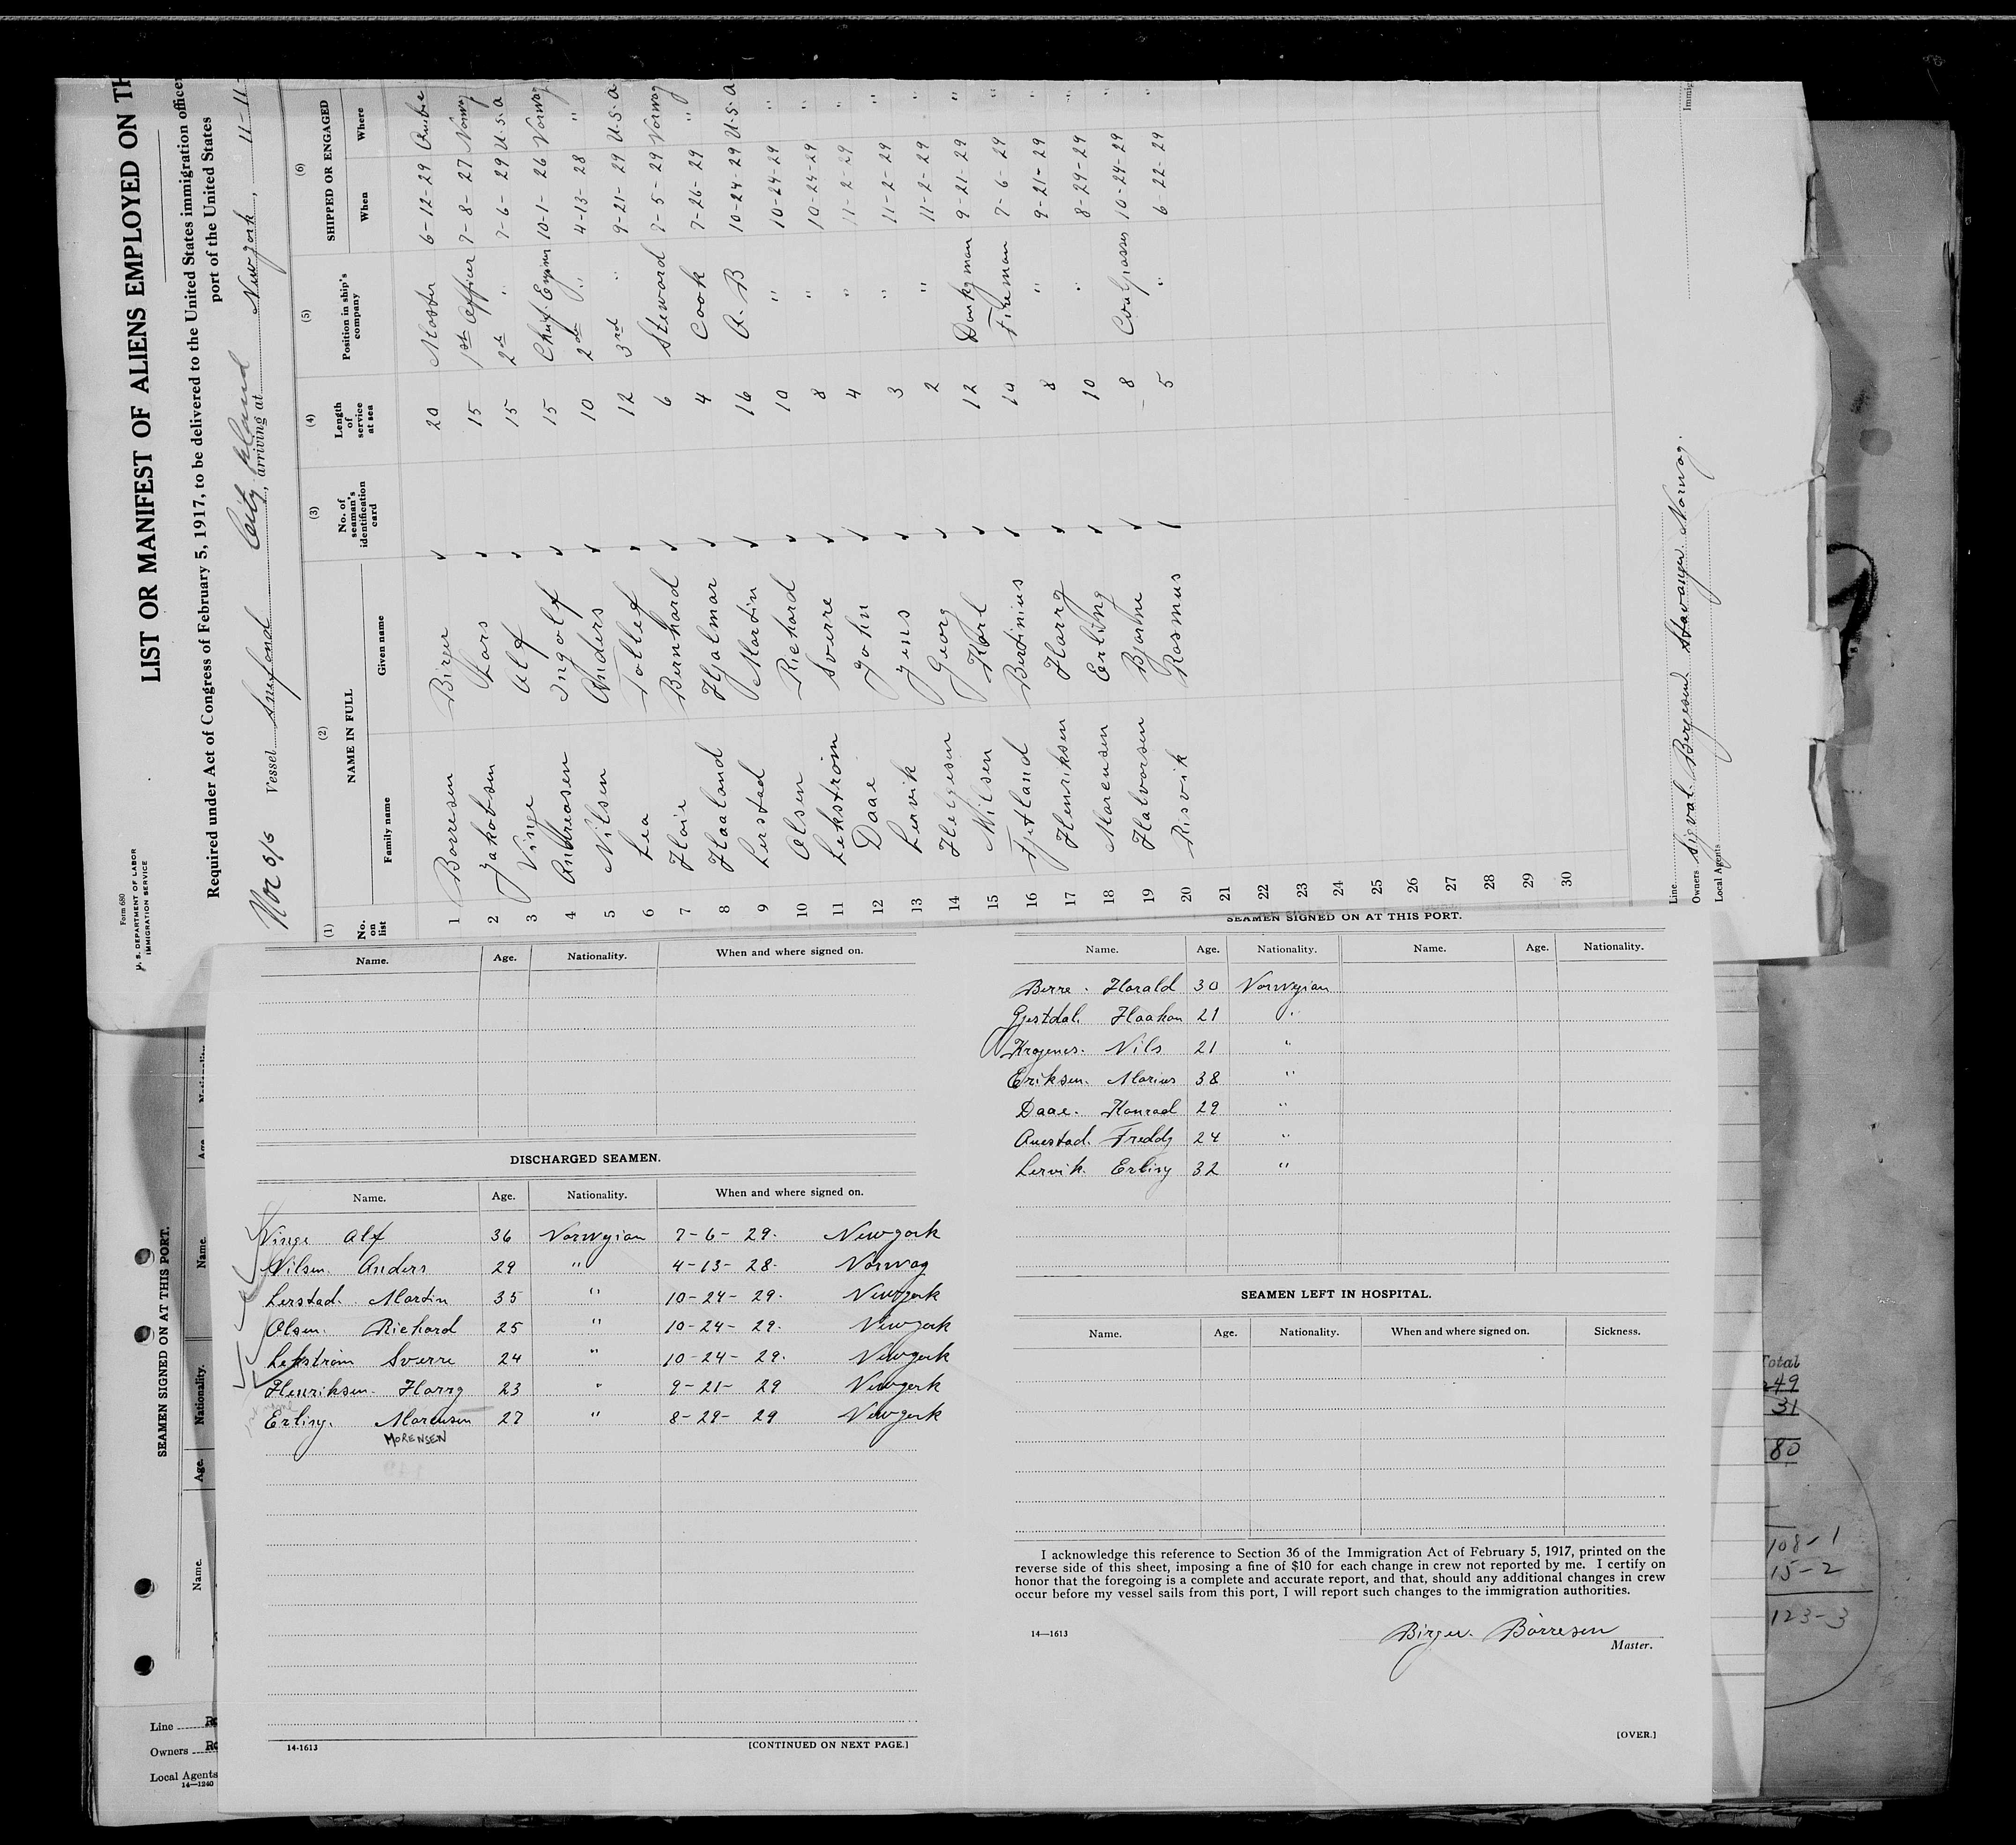 Form 680
U. S. DEPARTMENT OF LABOR
IMMIGRATION SERVICE
LIST OR MANIFEST OF ALIENS EMPLOYED ON TH
Required under Act of Congress of February 5, 1917, to be delivered to the United States immigration office
port of the United States
Nor S/S Vessel Snefond arriving at Newyork, 11-11-
(1) (2) (3) (4) (5) (6)
No. on list NAME IN FULL No. of seaman's identification card Length of service at sea Position in ship's company SHIPPED OR ENGAGED
Family name Given name When Where
1 Borresen Birger 20 Master 6-12-29
2 Jakobsen Lars 15 1st Officer 7-8-27 Norway
3 Vinge Alf 15 2nd " 7-6-29 U.S.A
4 Andreasen Ingolf 15 Chief Engineer 10-1-26 Norway
5 Nilsen Anders 10 2nd " 4-13-28 "
6 Lea Tollef 12 3rd " 9-21-29 U.S.A
7 Hoie Bernhard 6 Steword 7-5-29 Norway
8 Haaland Hjalmar 4 Cook 7-26-29 "
9 Lerstad Martin 16 A.B 10-24-29 U.S.A
10 Olsen Richard 10 " 10-24-29 "
11 Lekstrom Sverre 8 " 10-24-29 "
12 Daae John 4 " 11-2-29 "
13 Lervik Jens 3 " 11-2-29 "
14 Helgesen Georg 2 " 11-2-29 "
15 Nilsen Karl 12 Donkyman 9-21-29 "
16 Tjetland Bertinius 10 Fireman 7-6-29 "
17 Henriksen Harry 8 " 9-21-29 "
18 Marensen Erling 10 " 8-29-29 "
19 Halvorsen Bjarne 8 Coalpasser 10-24-29 "
20 Risvik Rasmus 5 " 6-22-29 "
21
22
23
24
25
26
27
28
29
30
Line
Owners Sigval Bergesen Stavanger Norway.
Local Agents
Immig
Name. Age. Nationality. When and where signed on.
DISCHARGED SEAMEN.
Name. Age. Nationality. When and where signed on.
Vinge Alf 36 Norwegian 7-6-29. Newyork
Nilsen. Anders 29 " 4-13-28. Norway
Lerstad. Martin 35 " 10-24-29. Newyork
Olsen. Richard 25 " 10-24-29. Newyork
Lekstrom Sverre 24 " 10-24-29. Newyork
Henriksen. Harry 23 " 9-21-29 Newyork
Erling. Marensen 27 " 8-29-29 Newyork
MORENSEN
14-1613
[CONTINUED ON NEXT PAGE.]
SEAMEN SIGNED ON AT THIS PORT.
Name. Age. Nationality. Name. Age. Nationality.
Berre. Harald 30 Norwegian
Gjestdal. Haakon 21 "
Nils 21 "
Eriksen. Marius 38 "
Daae. Konrad 29 "
Auestad. Freddy 24 "
Lervik. Erling 32 "
SEAMEN LEFT IN HOSPITAL.
Name. Age. Nationality. When and where signed on. Sickness.
I acknowledge this reference to Section 36 of the Immigration Act of February 5, 1917, printed on the
reverse side of this sheet, imposing a fine of $10 for each change in crew not reported by me. I certify on
honor that the foregoing is a complete and accurate report, and that, should any additional changes in crew
occur before my vessel sails from this port, I will report such changes to the immigration authorities.
14—1613
Birger. Börresen
Master.
[OVER.]
SEAMEN SIGNED ON AT THIS PORT.
Name. Age. Nationality. Name. Age. Nationality.
Line
Owners
Local Agents
14—1240
Total
49
31
80
108-1
15-2
123-3